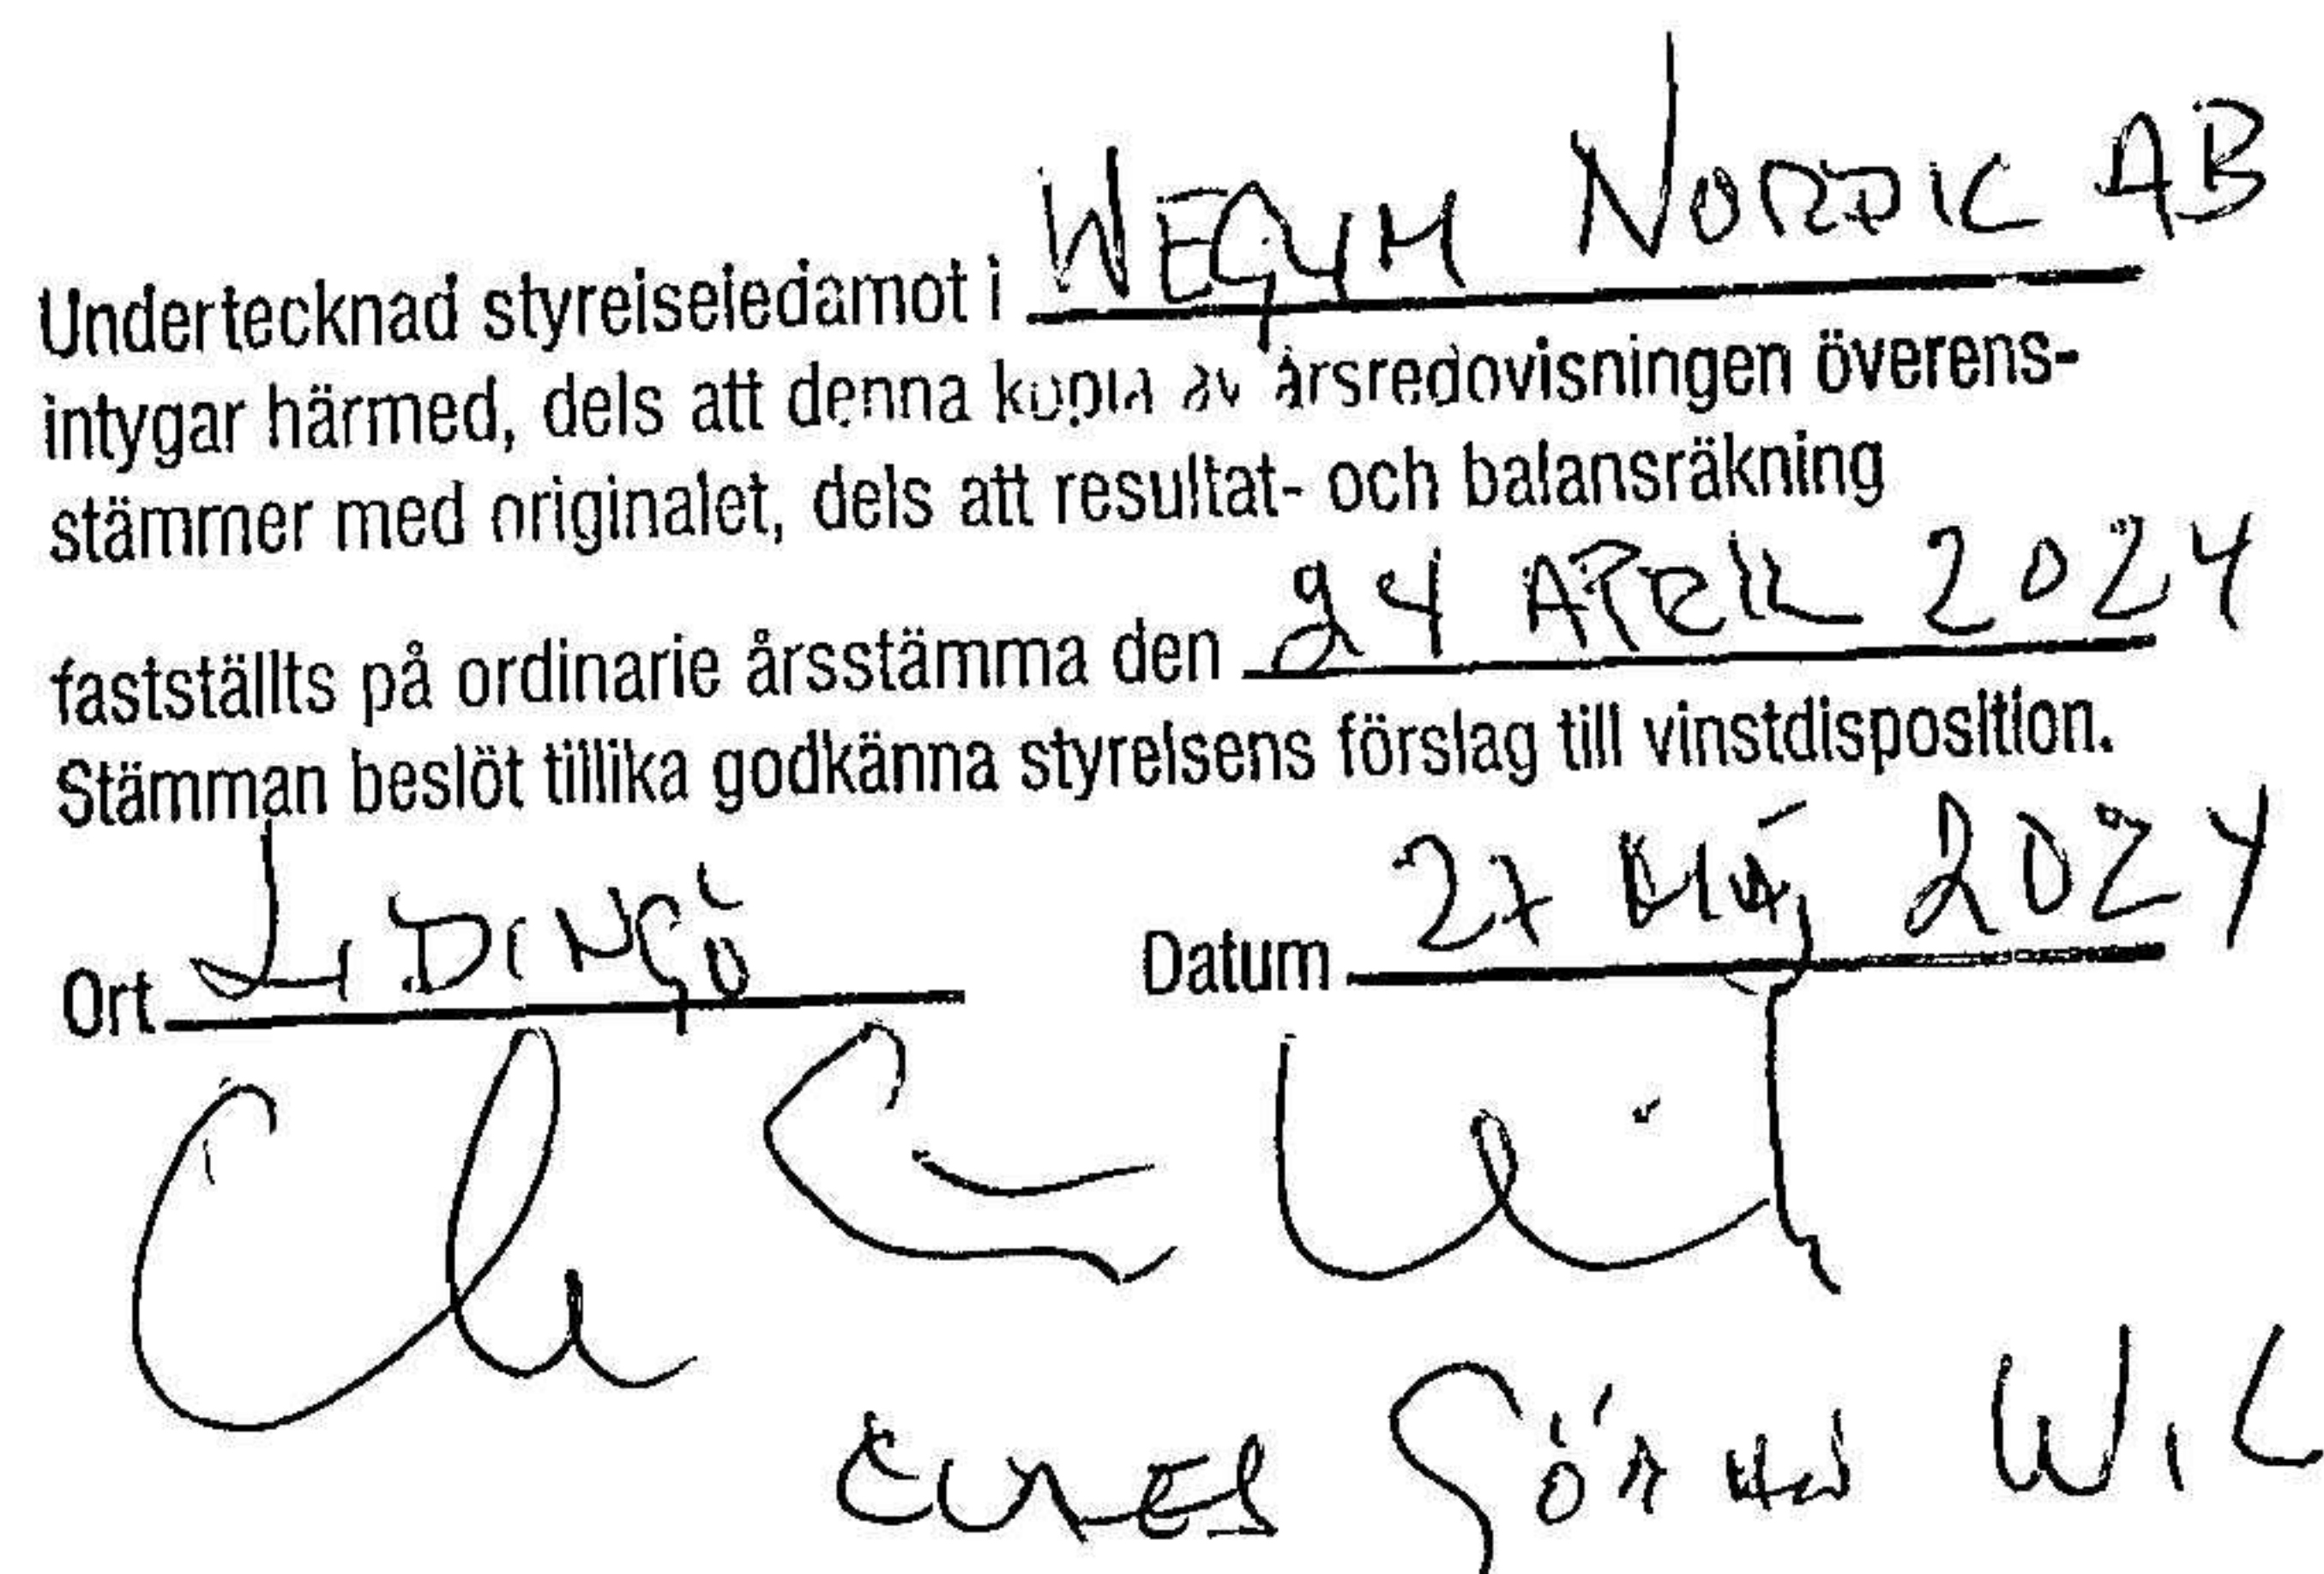 Undertecknad styrelseledamot i WEGYM NORDIC AB
intygar härmed, dels att denna kopia av årsredovisningen överens-
stämmer med originalet, dels att resultat- och balansräkning
fastställts på ordinarie årsstämma den 24 APRIL 2024
Stämman beslöt tillika godkänna styrelsens förslag till vinstdisposition.
Ort LIDINGÖ Datum 27 MAJ 2024
GÖRAN WIL